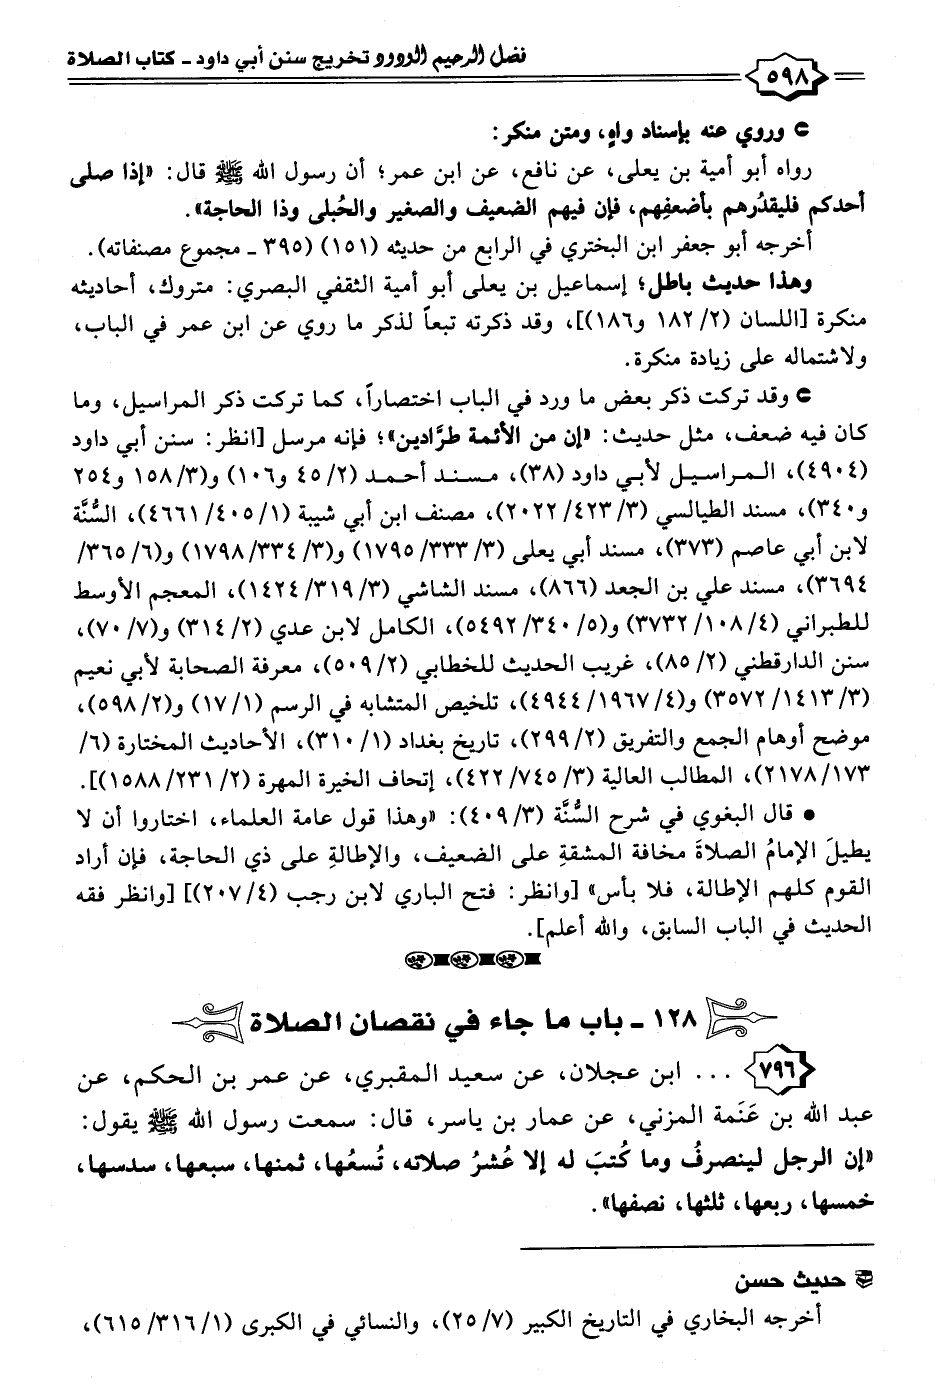 فضل الرحيم الودود تخريج سنن أبي داود - كتاب الصلاة
٥٩٨
وروي عنه بإسناد واهٍ، ومتن منكر:
رواه أبو أمية بن يعلى، عن نافع، عن ابن عمر؛ أن رسول الله ﷺ قال: «إذا صلى
أحدكم فليقدُرهم بأضعفِهم، فإن فيهم الضعيف والصغير والحُبلى وذا الحاجة».
أخرجه أبو جعفر ابن البختري في الرابع من حديثه (١٥١) (٣٩٥ - مجموع مصنفاته).
وهذا حديث باطل؛ إسماعيل بن يعلى أبو أمية الثقفي البصري: متروك، أحاديثه
منكرة [اللسان (٢/ ١٨٢ و١٨٦)]، وقد ذكرته تبعاً لذكر ما روي عن ابن عمر في الباب،
ولاشتماله على زيادة منكرة.
وقد تركت ذكر بعض ما ورد في الباب اختصاراً، كما تركت ذكر المراسيل، وما
كان فيه ضعف، مثل حديث: «إن من الأئمة طرَّادين»؛ فإنه مرسل [انظر: سنن أبي داود
(٤٩٠٤)، المراسيل لأبي داود (٣٨)، مسند أحمد (٢/ ٤٥ و١٠٦) و(٣/ ١٥٨ و٢٥٤
و٣٤٠)، مسند الطيالسي (٣/ ٤٢٣/ ٢٠٢٢)، مصنف ابن أبي شيبة (١/ ٤٠٥/ ٤٦٦١)، السُّنَّة
لابن أبي عاصم (٣٧٣)، مسند أبي يعلى (٣/ ٣٣٣/ ١٧٩٥) و(٣/ ٣٣٤/ ١٧٩٨) و(٦/ ٣٦٥/
٣٦٩٤)، مسند علي بن الجعد (٨٦٦)، مسند الشاشي (٣/ ٣١٩/ ١٤٢٤)، المعجم الأوسط
للطبراني (٤/ ١٠٨/ ٣٧٣٢) و(٥/ ٣٤٠/ ٥٤٩٢)، الكامل لابن عدي (٢/ ٣١٤) و(٧/ ٧٠)،
سنن الدارقطني (٢/ ٨٥)، غريب الحديث للخطابي (٢/ ٥٠٩)، معرفة الصحابة لأبي نعيم
(٣/ ١٤١٣/ ٣٥٧٢) و(٤/ ١٩٦٧/ ٤٩٤٤)، تلخيص المتشابه في الرسم (١/ ١٧) و(٢/ ٥٩٨)،
موضح أوهام الجمع والتفريق (٢/ ٢٩٩)، تاريخ بغداد (١/ ٣١٠)، الأحاديث المختارة (٦/
١٧٣/ ٢١٧٨)، المطالب العالية (٣/ ٧٤٥/ ٤٢٢)، إتحاف الخيرة المهرة (٢/ ٢٣١/ ١٥٨٨)].
• قال البغوي في شرح السُّنَّة (٣/ ٤٠٩): «وهذا قول عامة العلماء، اختاروا أن لا
يطيلَ الإمامُ الصلاةَ مخافة المشقةِ على الضعيف، والإطالةِ على ذي الحاجة، فإن أراد
القوم كلهم الإطالة، فلا بأس» [وانظر: فتح الباري لابن رجب (٤/ ٢٠٧)] [وانظر فقه
الحديث في الباب السابق، والله أعلم].
١٢٨ - باب ما جاء في نقصان الصلاة
٧٩٦ ... ابن عجلان، عن سعيد المقبري، عن عمر بن الحكم، عن
عبد الله بن عَنَمة المزني، عن عمار بن ياسر، قال: سمعت رسول الله ﷺ يقول:
«إن الرجل لينصرفُ وما كُتبَ له إلا عُشرُ صلاته، تُسعُها، ثمنها، سبعها، سدسها،
خمسها، ربعها، ثلثها، نصفها».
حديث حسن
أخرجه البخاري في التاريخ الكبير (٧/ ٢٥)، والنسائي في الكبرى (١/ ٣١٦/ ٦١٥)،